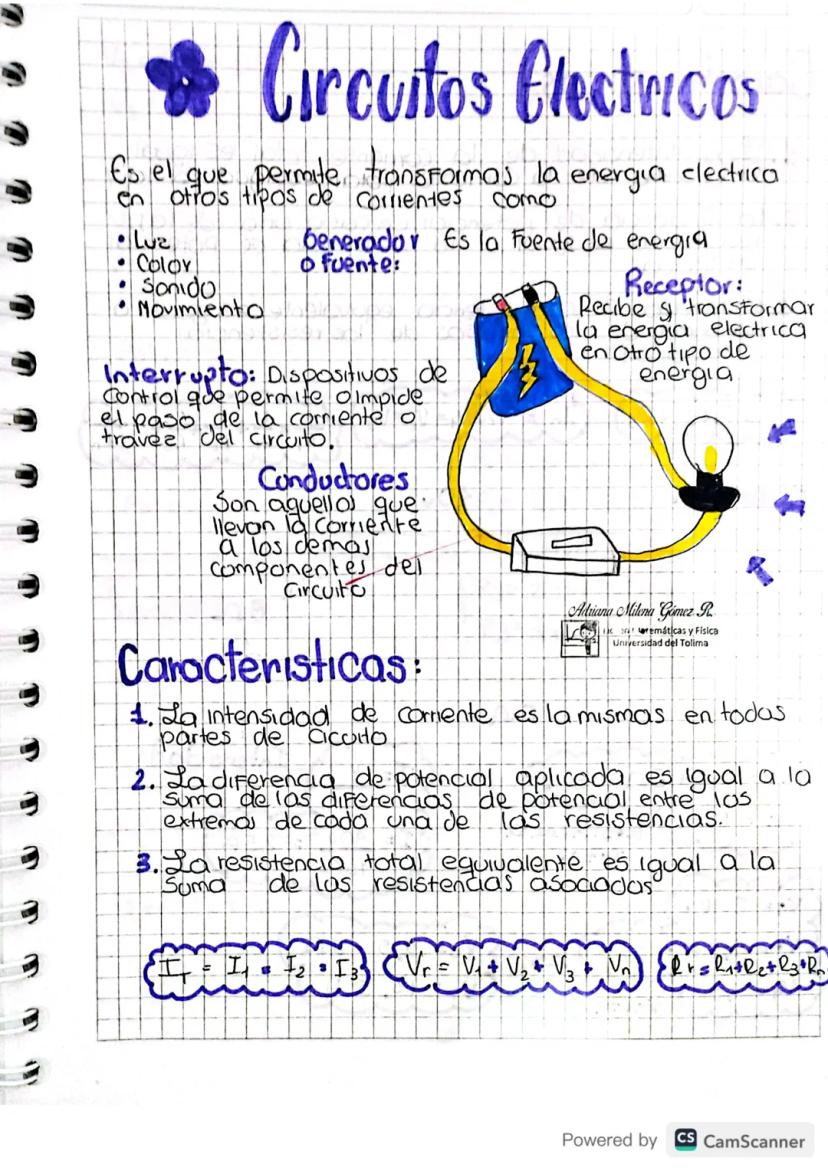 Circuitos Electricos
Es el que permite transformas la energia electrica
en otros tipos de corrientes como
• Luz
• Color
• Sonido
• Movimiento
Generador Es la Fuente de energia
o fuente:
Receptor:
Recibe y transformar
la energia electrica
en otro tipo de
energia
Interrupto: Dispositivos de
control que permite o impide
el paso de la corriente o
travez del circuito.
Conductores
Son aquellos que
llevan la corriente
a los demas
componentes del
circuito
Adriana Milena Gómez R.
Matemáticas y Física
Universidad del Tolima
Caracteristicas:
1. La intensidad de corriente es la mismas en todas
partes de cicuito
2. La diferencia de potencial aplicada es igual a la
suma de las diferencias de potencial entre los
extremos de cada una de las resistencias.
3. La resistencia total equivalente es igual a la
suma de las resistencias asociadas
I_T = I_1 = I_2 = I_3
V_r = V_1 + V_2 + V_3 + V_n
R_r = R_1 + R_2 + R_3 + R_n
Powered by CS CamScanner